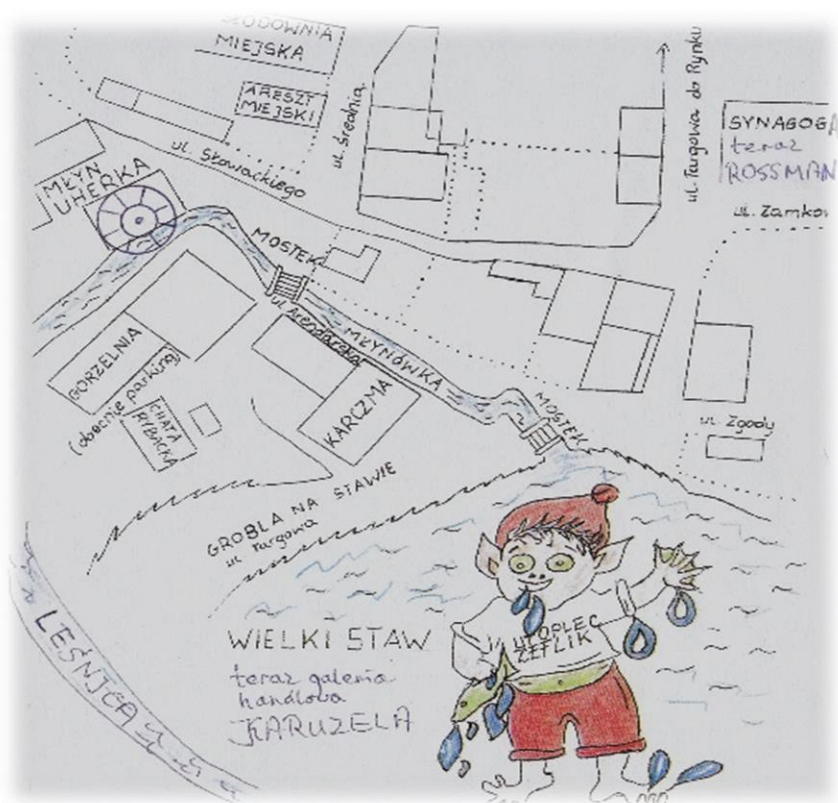 ŁODOWNIA
MIEJSKA
ARESZT
MIEJSKI
ul. Średnia
ul. Targowa do Rynku
SYNAGOGA
teraz
ROSSMAN
ul. Zamko
ul. Słowackiego
MŁYN
UHERKA
MOSTEK
ul. Arendarska
MŁYNÓWKA
GORZELNIA
(obecnie parking)
CHATA
RYBACKA
KARCZMA
MOSTEK
ul. Zgody
GROBLA NA STAWIE
ul Targowa
WIELKI STAW
teraz galeria
handlowa
KARUZELA
UTOPLEC
ZEFLIK
LEŚNICA